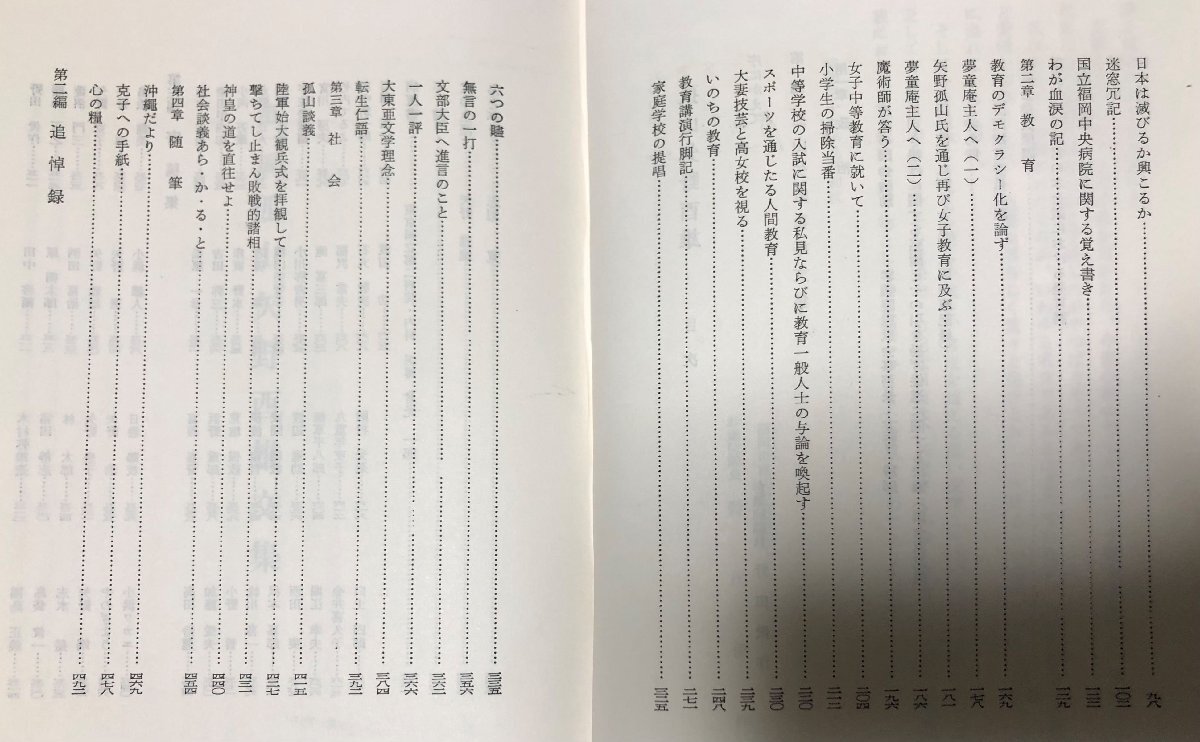 日本は滅びるか興こるか……九八
迷窓冗記……一〇三
国立福岡中央病院に関する覚え書き……一二三
わが血涙の記……一二九
第二章 教育
教育のデモクラシー化を論ず……一六九
夢童庵主人へ(一)……一七八
矢野孤山氏を通じ再び女子教育に及ぶ……一八一
夢童庵主人へ(二)……一八六
魔術師が答う……一九六
女子中等教育に就いて……二〇四
小学生の掃除当番……二一三
中等学校の入試に関する私見ならびに教育一般人士の与論を喚起す……二二〇
スポーツを通じたる人間教育……二三〇
大妻技芸と高女校を視る……二三九
いのちの教育……二四八
教育講演行脚記……二七一
家庭学校の提唱……三二五
六つの嘘……三三五
無言の一打……三五六
文部大臣へ進言のこと……三六二
一人一評……三六六
大東亜文学理念……三八四
転生仁語……三九二
第三章 社会
孤山談義……四一五
陸軍始大観兵式を拝観して……四二七
撃ちてし止まん敗戦的諸相……四三一
神皇の道を直往せよ……四四〇
社会談義あら・か・る・と……四五四
第四章 随筆
沖縄だより……四六九
克子への手紙……四七八
心の糧……四九二
第二編 追悼録